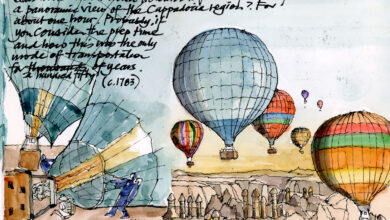 a panoramic view of the Cappadocia region? For
about one hour. Probably, if
you consider the prep time
and how this was the only
mode of transportation
of years.
(c.1783)